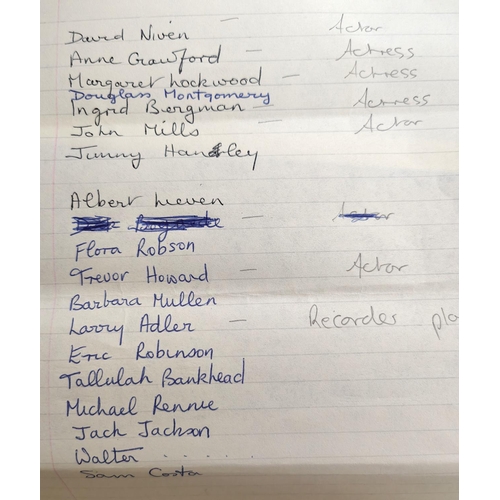 David Niven – Actor
Anne Crawford – Actress
Margaret Lockwood – Actress
Douglass Montgomery
Ingrid Bergman – Actress
John Mills – Actor
Jimmy Handley
Albert Lieven
Flora Robson
Trevor Howard – Actor
Barbara Mullen
Larry Adler – Recorder pla
Eric Robinson
Tallulah Bankhead
Michael Rennie
Jack Jackson
Walter .......
Sam Costa